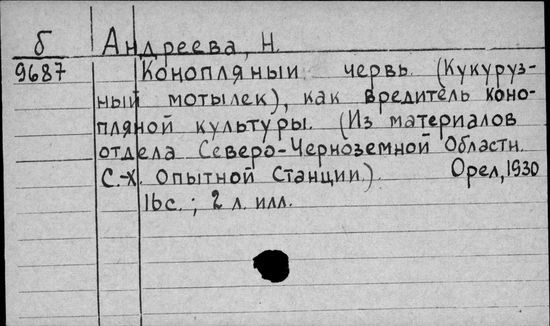 б Андреева, Н.
9687 Конопляный червь. (Кукуруз-
ный мотылек), как вредитель коно-
пляной культуры. (Из материалов
отдела Северо-Черноземной Областн.
С.-Х. Опытной Станции.). Орел, 1930
16с.; 2 л. илл.